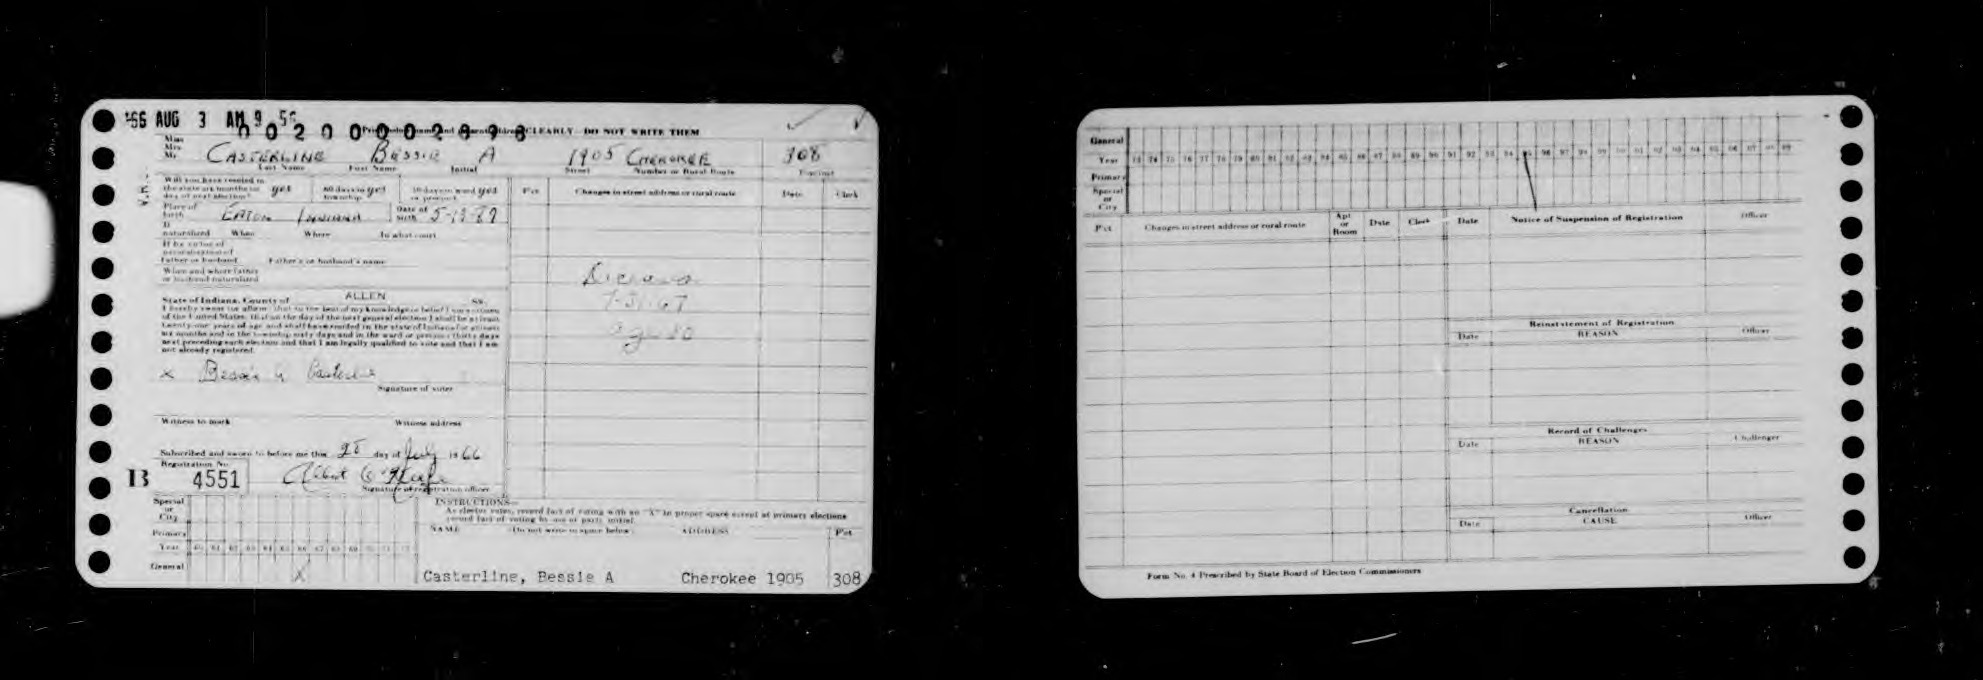 '66 AUG 3 AM 9 56
0 0 2 0 0 0 0 2 8 9 8
CLEARLY DO NOT WRITE THEM
Miss
Mrs
Mr
CASTERLINE BESSIE A 1905 CHEROKEE 308
Last Name First Name Initial Street Number or Rural Route Precinct
Will you have resided in
the state six months to yes 60 days in yes 30 days in ward yes
day of next election? township or precinct
P'ct Changes in street address or rural route Date Clerk
Place of
birth EATON INDIANA Date of
birth
If
naturalized When Where In what court
If by virtue of
naturalization of
Father or husband Father's or husband's name
When and where father
or husband naturalized
State of Indiana, County of ALLEN SS.
I hereby swear (or affirm) that to the best of my knowledge or belief I am a citizen
of the United States, that on the day of the next general election I shall be at least
twenty-one years of age and shall have resided in the state of Indiana for at least
six months and in the township sixty days and in the ward or precinct thirty days
next preceding such election and that I am legally qualified to vote and that I am
not already registered.
age 80
X Bessie A Casterline
Signature of voter
Witness to mark Witness address
Subscribed and sworn to before me this day of July 1966
Registration No.
B 4551
Signature of registration officer
INSTRUCTIONS
As elector votes, record fact of voting with an "X" in proper space except at primary elections
record fact of voting by use of party initial
NAME Do not write in space below ADDRESS P'ct
Special
or
City
Primary
Year 60 61 62 63 64 65 66 67 68 69 70 71 72
General X
Casterline, Bessie A Cherokee 1905 308
General
Year 73 74 75 76 77 78 79 80 81 82 83 84 85 86 87 88 89 90 91 92 93 94 95 96 97 98 99
Primary
Special
or
City
P'ct Changes in street address or rural route Apt
or
Room Date Clerk Date Notice of Suspension of Registration Officer
Reinstatement of Registration
Date REASON Officer
Record of Challenges
Date REASON Challenger
Cancellation
Date CAUSE Officer
Form No. 4 Prescribed by State Board of Election Commissioners